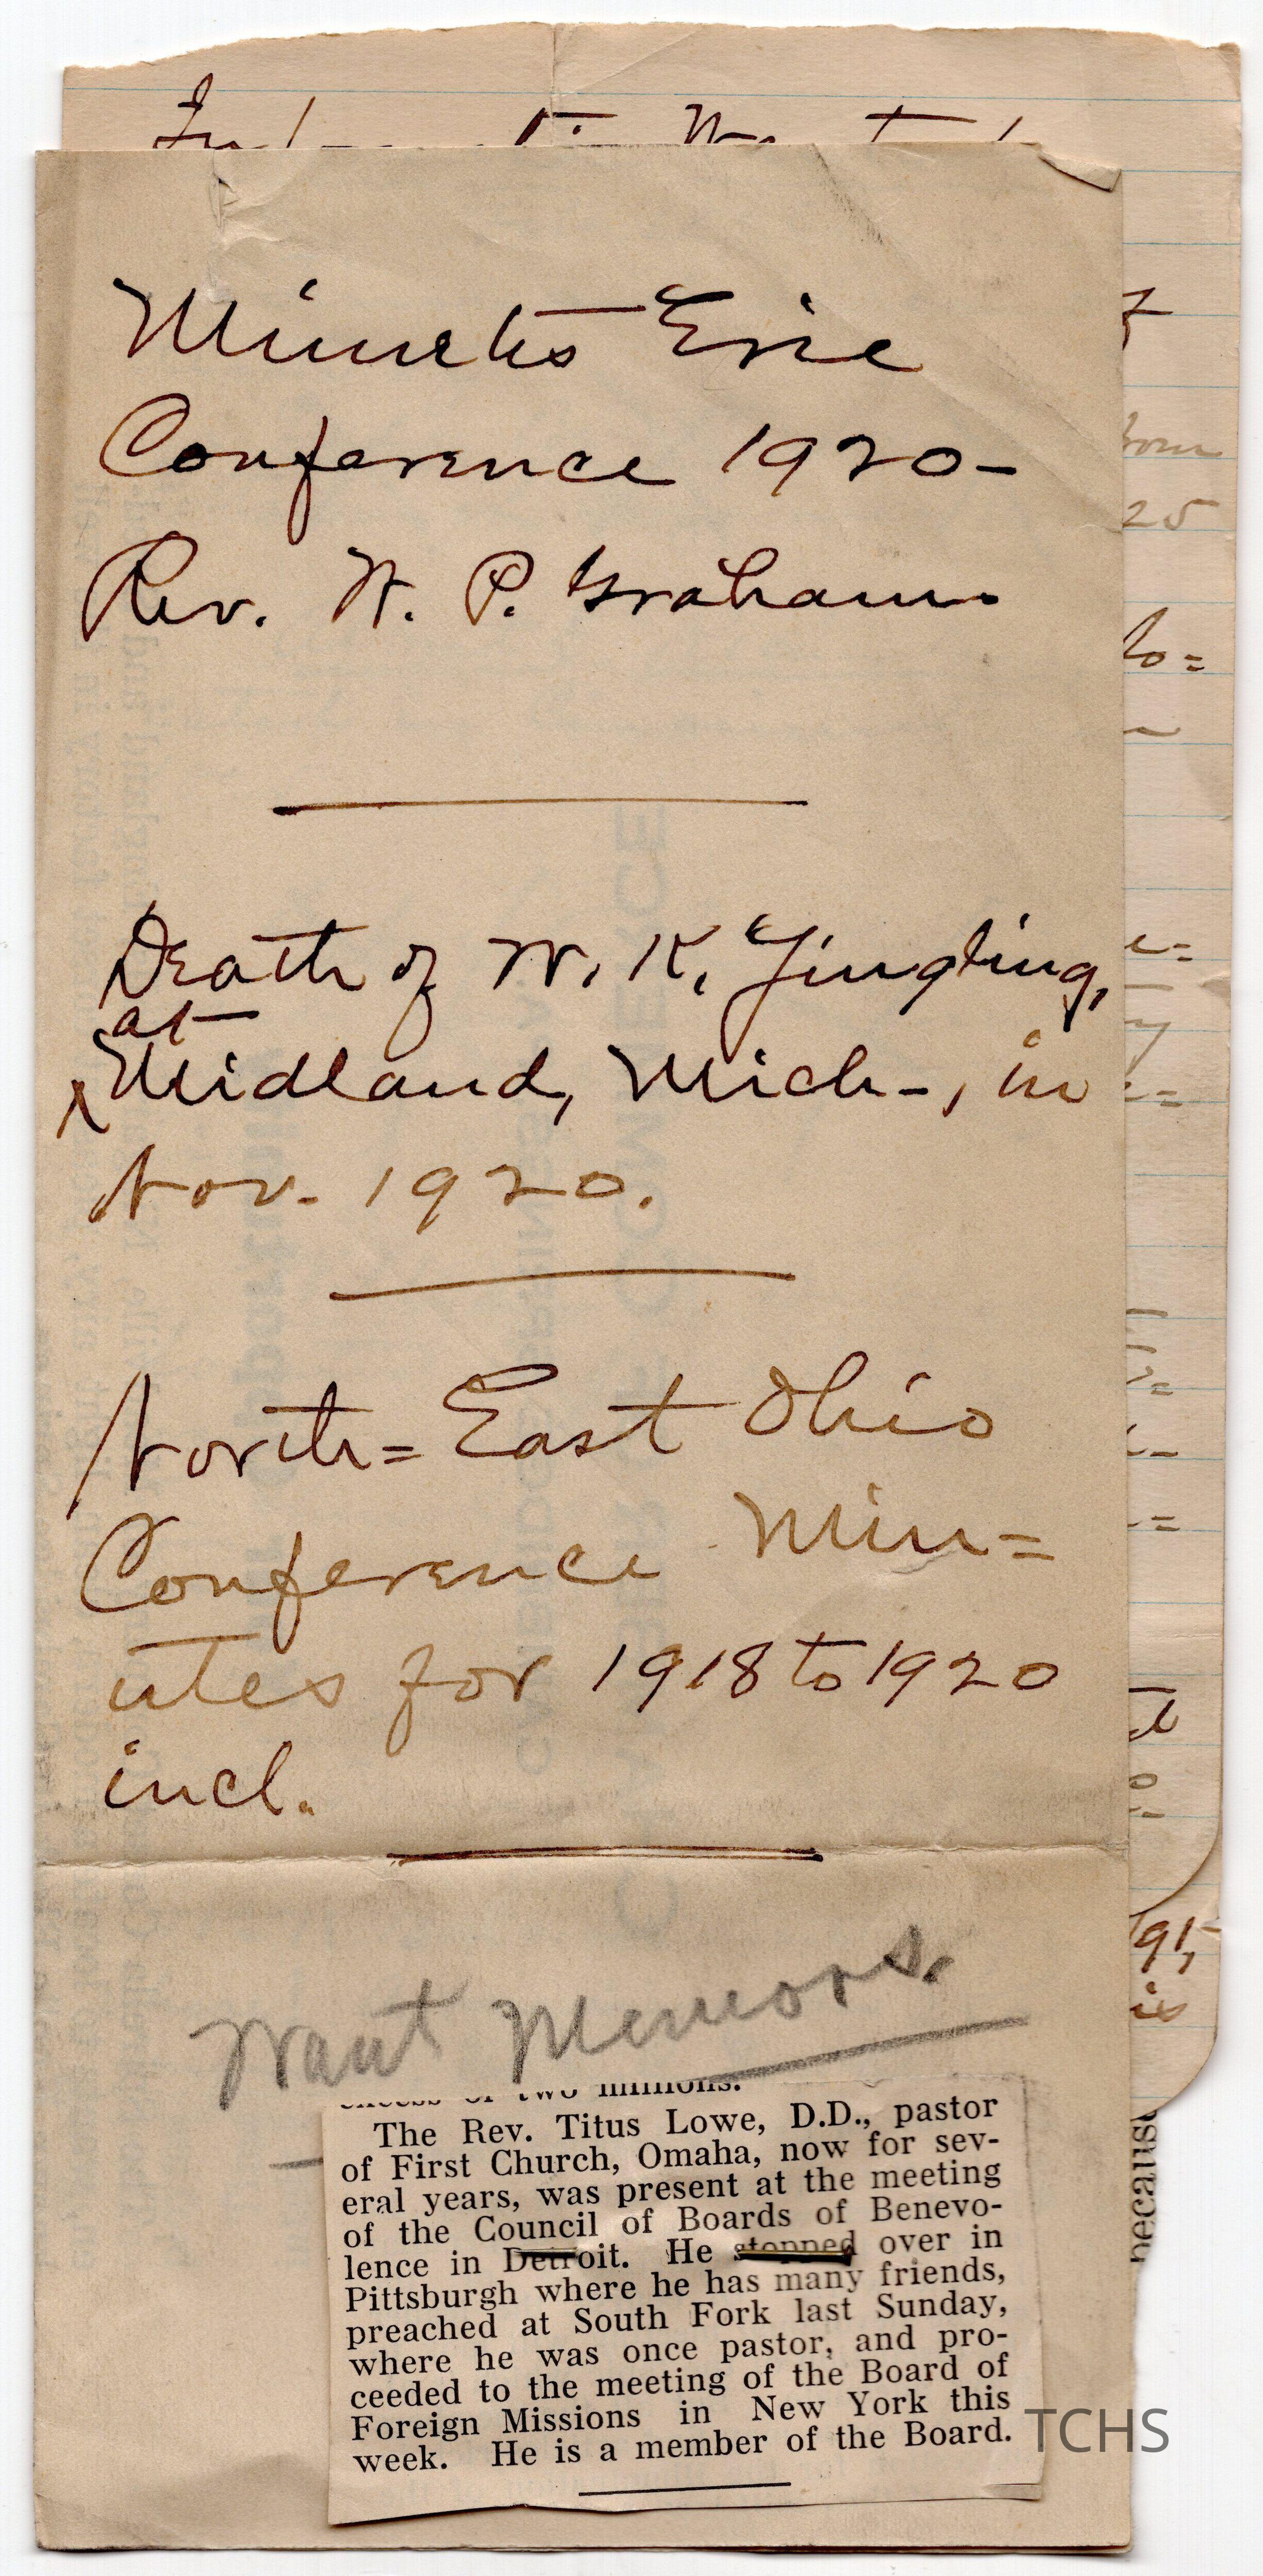 Minutes Erie
Conference 1920-
Rev. W. P. Graham.
Death of W. K. Yingling,
at
Midland, Mich-, in
Nov. 1920.
North= East Ohio
Conference Min=
utes for 1918 to 1920
incl.
Want Memoors.
excess of two millions.
The Rev. Titus Lowe, D.D., pastor
of First Church, Omaha, now for sev-
eral years, was present at the meeting
of the Council of Boards of Benevo-
lence in Detroit. He stopped over in
Pittsburgh where he has many friends,
preached at South Fork last Sunday,
where he was once pastor, and pro-
ceeded to the meeting of the Board of
Foreign Missions in New York this
week. He is a member of the Board.
TCHS
25
to=
91,
is
because